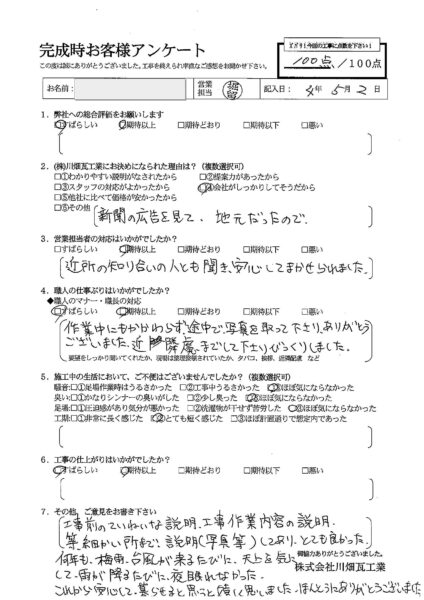 完成時お客様アンケート
この度は誠にありがとうございました。工事を終えられ率直なご感想をお聞かせ下さい。
ズバリ!今回の工事に点数を下さい!
100点/100点
お名前:
営業担当
記入日: 4年 5月 2日
1. 弊社への総合評価をお願いします
□①すばらしい □期待以上 □期待どおり □期待以下 □悪い
2. (株)川畑瓦工業にお決めになられた理由は? (複数選択可)
□①わかりやすい説明がなされたから □②提案力があったから
□③スタッフの対応がよかったから □④会社がしっかりしてそうだから
□⑤他社に比べて価格が安かったから
□⑥その他
新聞の広告を見て、地元だったので、
3. 営業担当者の対応はいかがでしたか?
□すばらしい □期待以上 □期待どおり □期待以下 □悪い
近所の知り合いの人とも聞き、安心してまかせられました。
4. 職人の仕事ぶりはいかがでしたか?
◆職人のマナー・職長の対応
□すばらしい □期待以上 □期待どおり □期待以下 □悪い
作業中にもかかわらず途中で写真を取って下さり、ありがとう
ございました。近隣配慮までして下さりびっくりしました。
要望をしっかり聞いてくれたか、現場は整理整頓されていたか、タバコ、挨拶、近隣配慮 など
5. 施工中の生活において、ご不便はございませんでしたか? (複数選択可)
騒音:□①足場作業時はうるさかった □②工事中うるさかった □③ほぼ気にならなかった
臭い:□①かなりシンナーの臭いがした □②少し臭った □③ほぼ気にならなかった
足場:□①圧迫感があり気分が悪かった □②洗濯物が干せず苦労した □③ほぼ気にならなかった
工期:□①非常に長く感じた □②とても短く感じた □③ほぼ計画通りで想定内であった
6. 工事の仕上がりはいかがでしたか?
□すばらしい □期待以上 □期待どおり □期待以下 □悪い
7. その他、ご意見をお書き下さい
工事前のていねいな説明、工事作業内容の説明、
等、細かい所まで、説明(写真等)してあり、とても良かった。
何年も、梅雨、台風が来るたびに、天上を気に
御協力ありがとうございました。
株式会社川畑瓦工業
して、雨が降るたびに、夜眠れなかった。
これから安心して、暮らせると思うと嬉しく思いました。ほんとうにありがとうございました